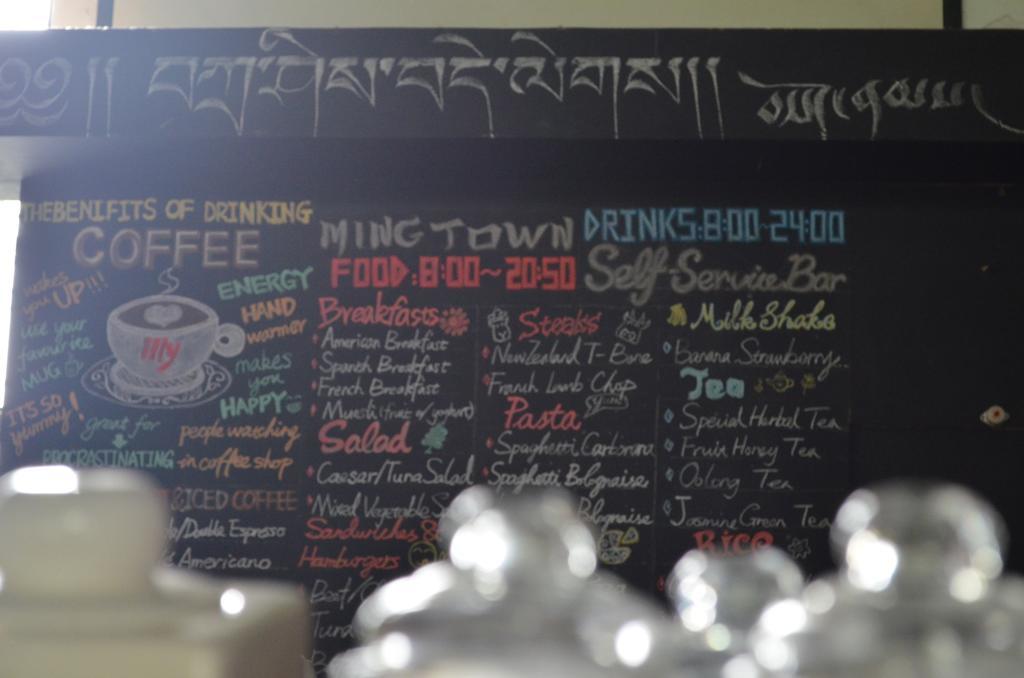 ༄༅།། བཀྲ་ཤིས་བདེ་ལེགས།།།
THE BENIFITS OF DRINKING
COFFEE
makes you UP!!!
use your favourite MUG
IT'S SO yummy!
great for
PROCRASTINATING
ENERGY
HAND warmer
makes you HAPPY
people watching
in coffee shop
illy
ICED COFFEE
Double Espresso
Americano
MING TOWN
FOOD:8:00~20:50
DRINKS:8:00-24:00
Self-Service Bar
Breakfasts
American Breakfast
Spanish Breakfast
French Breakfast
Muesli (fruit w/ yoghurt)
Salad
Caesar/Tuna Salad
Mixed Vegetable
Sandwiches &
Hamburgers
Beef/
Tuna
Steaks
New Zealand T-Bone
French Lamb Chop
Pasta
Spaghetti Carbonara
Spaghetti Bolognaise
Bolognaise
Milk Shake
Banana Strawberry..
Tea
Special Herbal Tea
Fruit Honey Tea
Oolong Tea
Jasmine Green Tea
Rice